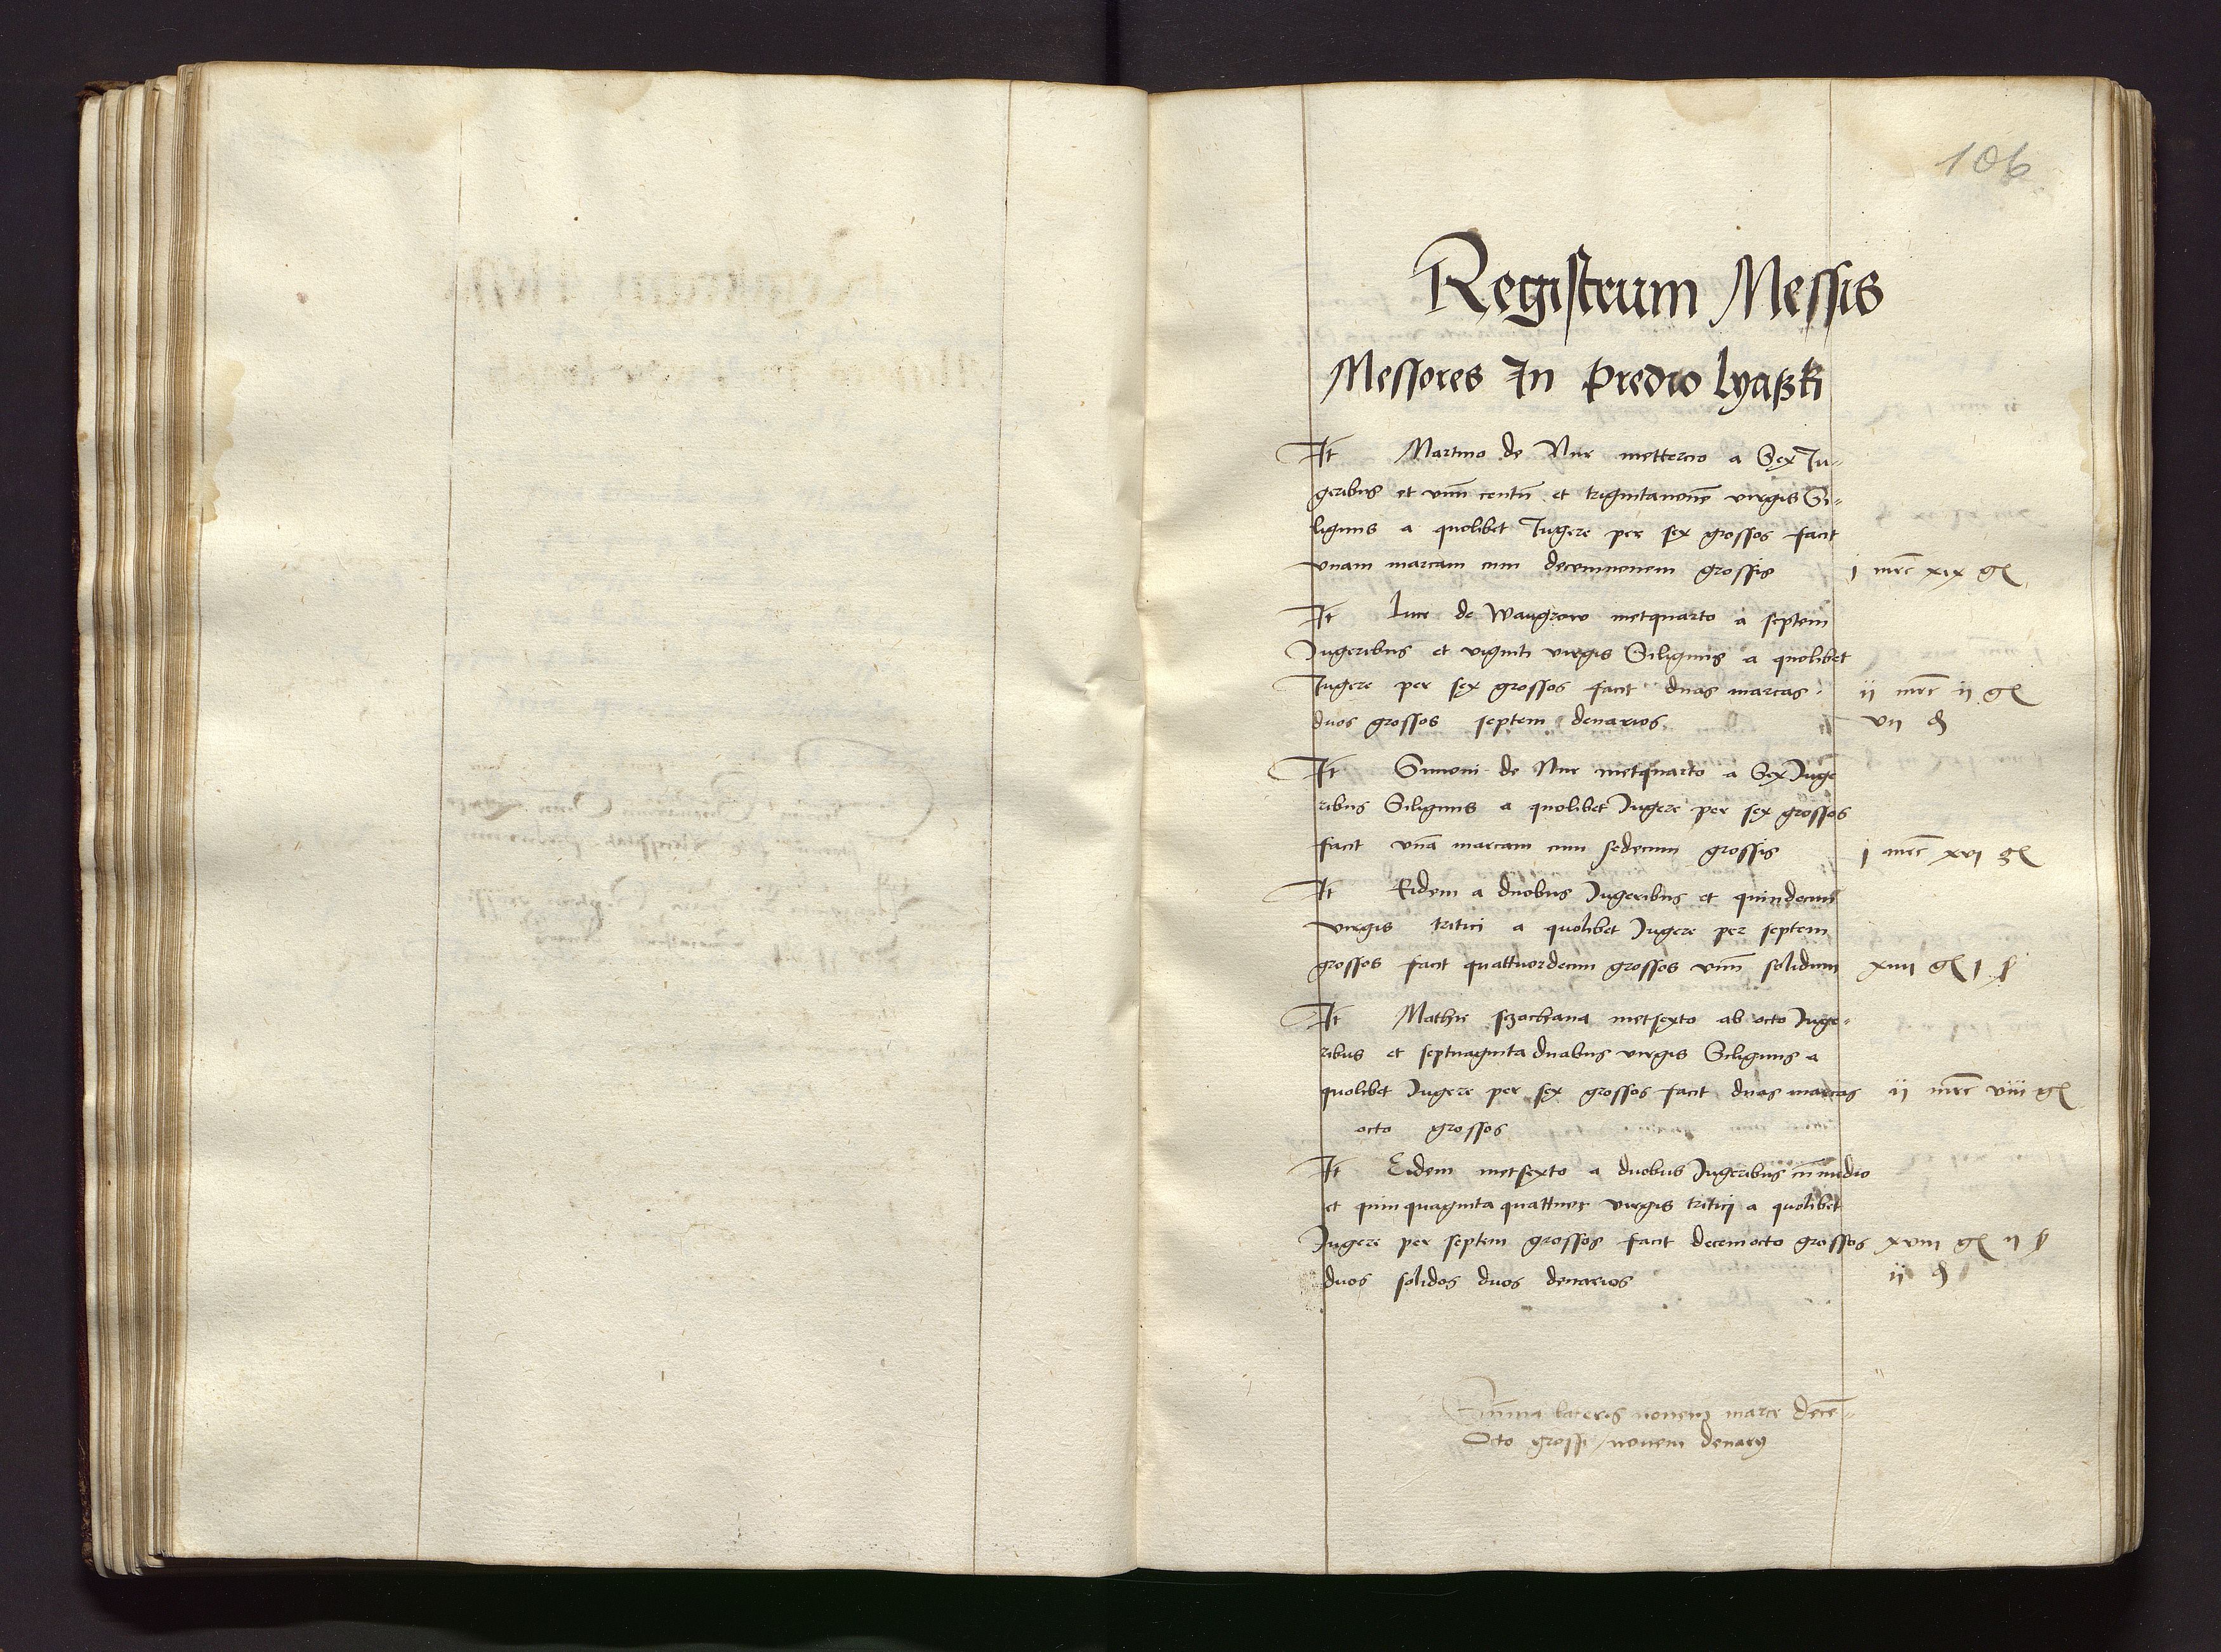 106
Registrum Messis
Messores In Predio lyaßki
It Martino de Nur mettercio a Sex Ju-
geribus et vnū centū et trigintanouē virgis Si-
liginis a quolibet Jugere per sex grossos facit
vnam marcam cum decemnouem grossis j mrc xix gl
It luce de Waugrow metquarto a septem
Jugeribus et viginti virgis Siliginis a quolibet
Jugere per sex grossos facit duas marcas ij mrc ij gl
duos grossos septem denarios vij d
It Simoni de Nur metquarto a Sex Juge
ribus Siliginis a quolibet Jugere per sex grossos
facit vnā marcam cum sedecim grossis j mrc xvj gl
It Eidem a duobus Jugeribus et quindecim
virgis tritici a quolibet Jugere per septem
grossos facit quattuordecim grossos vnū solidum xiiij gl j ß
It Mathie szachana metsexto ab octo Juge-
ribus et septuaginta duabus virgis Siliginis a
quolibet Jugere per sex grossos facit duas marcas ij mrc viii gl
octo grossos
It Eidem metsexto a duobus Jugeribus cū medio
et quinquaginta quattuor virgis tritici a quolibet
Jugere per septem grossos facit decemocto grossos xviij gl ij ß
duos solidos duos denarios ij d
Sūma lateris nouem marce decē-
Octo grossi nouem denarij